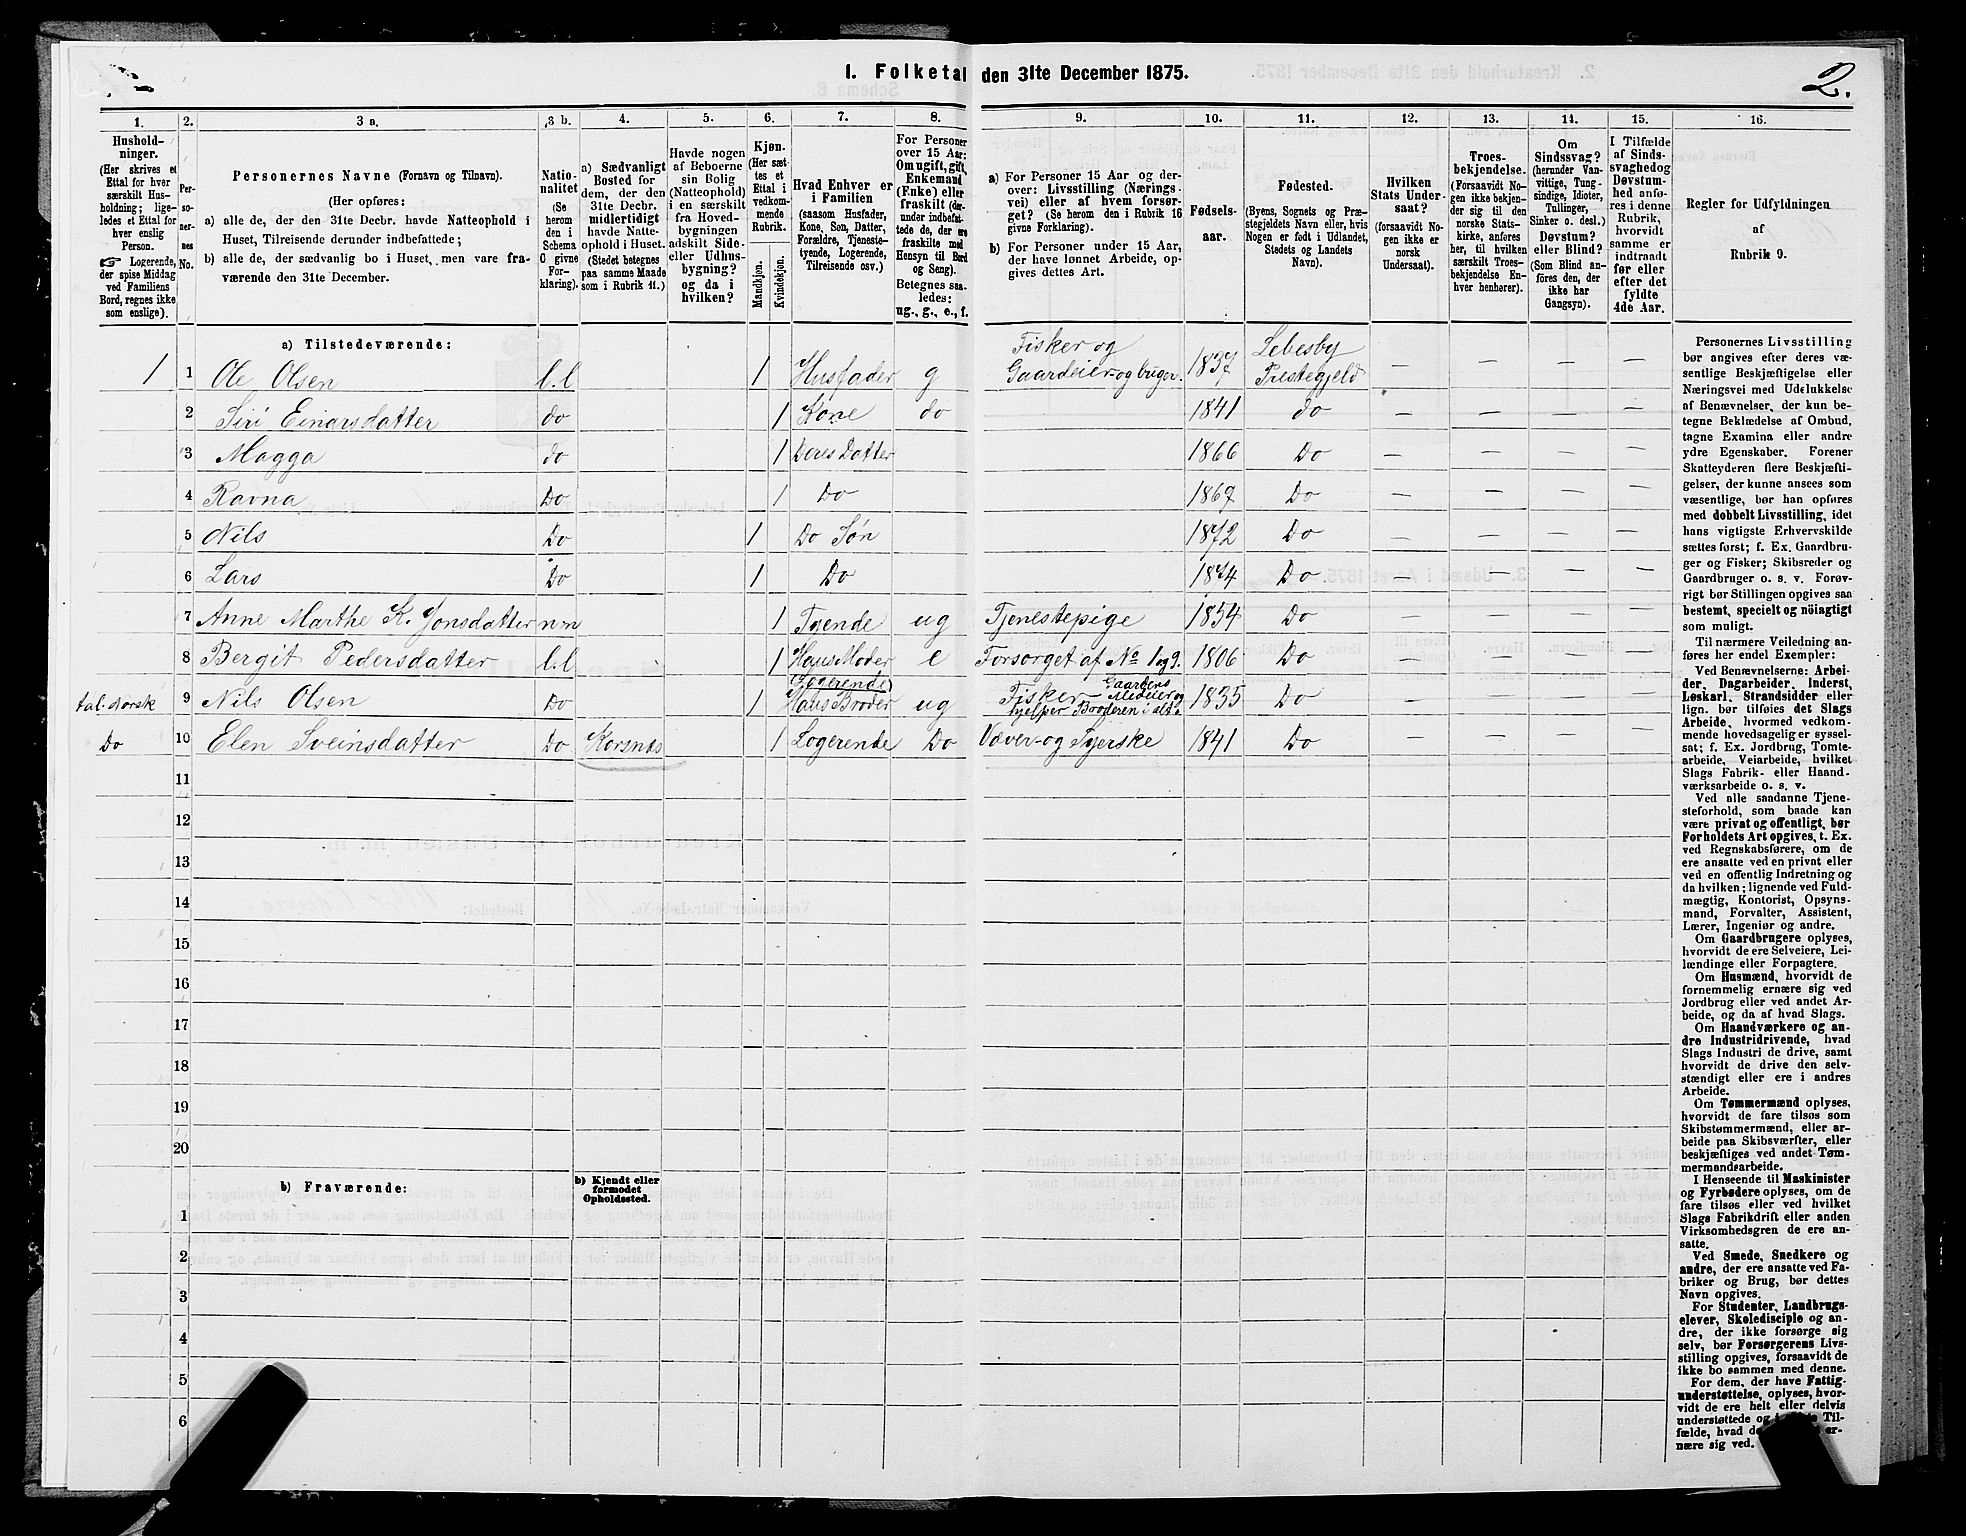 2.
1. Folketal den 31te December 1875.
1. 2. 3 a. 3 b. 4. 5. 6. 7. 8. 9. 10. 11. 12. 13. 14. 15. 16.
Hushold-
ninger.
(Her skrives et
Ettal for hver
særskilt Hus-
holdning; lige-
ledes et Ettal for
hver enslig
Person.
☞ Logerende,
der spise Middag
ved Familiens
Bord, regnes ikke
som enslige).
Per-
so-
ner-
nes
No.
Personernes Navne (Fornavn og Tilnavn).
(Her opføres:
a) alle de, der den 31te Decbr. havde Natteophold i
Huset, Tilreisende derunder indbefattede;
b) alle de, der sædvanlig bo i Huset, men vare fra-
værende den 31te December.
Natio-
nalitet
(Se
herom
den i
Schema
C givne
For-
klaring).
a) Sædvanligt
Bosted for
dem, der den
31te Decbr.
midlertidigt
havde Natte-
ophold i Huset.
(Stedet betegnes
paa samme Maade
som i Rubrik 11.)
Havde nogen
af Beboerne
sin Bolig
(Natteophold)
i en særskilt
fra Hoved-
bygningen
adskilt Side-
eller Udhus-
bygning?
og da i
hvilken?
Kjøn.
(Her sæt-
tes et
Ettal i
vedkom-
mende
Rubrik.
Mandkjøn.
Kvindekjøn.
Hvad Enhver er
i Familien
(saasom Husfader,
Kone, Søn, Datter,
Forældre, Tjeneste-
tyende, Logerende,
Tilreisende osv.)
For Personer
over 15 Aar:
Om ugift, gift,
Enkemand
(Enke) eller
fraskilt (der-
under indbefat-
tede de, der ere
fraskilte med
Hensyn til Bord
og Seng).
Betegnes saa-
ledes:
ug., g., e., f.
a) For Personer 15 Aar og der-
over: Livsstilling (Nærings-
vei) eller af hvem forsør-
get? (Se herom den i Rubrik 16
givne Forklaring).
b) For Personer under 15 Aar,
der have lønnet Arbeide, op-
gives dettes Art.
Fødsels-
aar.
Fødested.
(Byens, Sognets og Præ-
stegjeldets Navn eller, hvis
Nogen er født i Udlandet,
Stedets og Landets
Navn).
Hvilken
Stats Under-
saat?
(forsaavidt No-
gen ikke er
norsk
Undersaat).
Troes-
bekjendelse.
(Forsaavidt No-
gen ikke bekjen-
der sig til den
norske Stats-
kirke, anføres
her, til hvilken
særskilt Troes-
bekjendelse En-
hver henhører).
Om
Sindssvag?
(herunder Van-
vittige, Tung-
sindige, Idioter,
Tullinger,
Sinker o. desl.)
Døvstum?
eller Blind?
(Som Blind an-
føres den, der
ikke har
Gangsyn).
I Tilfælde
af Sinds-
svaghed og
Døvstum-
hed anfø-
res i denne
Rubrik,
hvorvidt
samme er
indtraadt
før eller
efter det
fyldte
4de Aar.
Regler for Udfyldningen
af
Rubrik 9.
a) Tilstedeværende:
1 1 Ole Olsen l.l 1 Husfader g Fisker og Gaardeier-og bruger. 1837 Lebesby Prestegjeld — — — —
2 Siri Einarsdatter do 1 Kone do 1841 do — — — —
3 Magga do 1 Deres Datter 1866 Do — — — —
4 Ravna Do 1 Do 1867 Do — — — —
5 Nils Do 1 Do Søn 1872 Do — — — —
6 Lars Do 1 Do 1874 Do — — — —
7 Anne Marthe K. Jonsdatter n n 1 Tyende ug Tjenestepige 1854 Do — — — —
8 Bergit Pedersdatter l.l 1 Hans Moder e Forsørget af No 1 og 9. 1806 Do — — — —
tal. norsk 9 Nils Olsen Do 1 (Logerende) Hans Broder ug Fisker Gaardens Medeier og hjelper Broderen i alt. 1835 Do — — — —
Do 10 Elen Sveinsdatter Do Korsnæs 1 Logerende Do Væver-og Syerske 1841 Do — — — —
11
12
13
14
15
16
17
18
19
20
b) Fraværende:
b) Kjendt eller
formodet
Opholdssted.
1
2
3
4
5
6
Personernes Livsstilling
bør angives efter deres væ-
sentlige Beskjæftigelse eller
Næringsvei med Udelukkelse
af Benævnelser, der kun be-
tegne Beklædelse af Ombud,
tagne Examina eller andre
ydre Egenskaber. Forener
Skatteyderen flere Beskjæfti-
gelser, der kunne ansees som
væsentlige, bør han opføres
med dobbelt Livsstilling, idet
hans vigtigste Erhvervskilde
sættes først; f. Ex. Gaardbru-
ger og Fisker; Skibsreder og
Gaardbruger o. s. v. Forøv-
rigt bør Stillingen opgives saa
bestemt, specielt og nöiagtigt
som muligt.
Til nærmere Veiledning an-
føres her endel Exempler:
Ved Benævnelserne: Arbei-
der, Dagarbeider, Inderst,
Løskarl, Strandsidder eller
lign. bør tilføies det Slags
Arbeide, hvormed vedkom-
mende hovedsagelig er syssel-
sat; f. Ex. Jordbrug, Tomte-
arbeide, Veiarbeide, hvilket
Slags Fabrik- eller Haand-
værksarbeide o. s. v.
Ved alle saadanne Tjene-
steforhold, som baade kan
være privat og offentligt, bør
Forholdets Art opgives, t. Ex.
ved Regnskabsførere, om de
ere ansatte ved en privat eller
ved en offentlig Indretning og
da hvilken; lignende ved Fuld-
mægtig, Kontorist, Opsyns-
mand, Forvalter, Assistent,
Lærer, Ingeniør og andre.
Om Gaardbrugere oplyses,
hvorvidt de ere Selveiere, Lei-
lændinge eller Forpagtere.
Om Husmænd, hvorvidt de
fornemmelig ernære sig ved
Jordbrug eller ved andet Ar-
beide, og da af hvad Slags.
Om Haandværkere og an-
dre Industridrivende, hvad
Slags Industri de drive, samt
hvorvidt de drive den selv-
stændigt eller ere i andres
Arbeide.
Om Tømmermænd oplyses,
hvorvidt de fare tilsøs som
Skibstømmermænd, eller ar-
beide paa Skibsværfter, eller
beskjæftiges ved andet Tøm-
mermandsarbeide.
I Henseende til Maskinister
og Fyrbødere oplyses, om de
fare tilsøs eller ved hvilket
Slags Fabrikdrift eller anden
Virksomhedsgren de ere an-
satte.
Ved Smede, Snedkere og
andre, der ere ansatte ved Fa-
briker og Brug, bør dettes
Navn opgives.
For Studenter, Landbrugs-
elever, Skoledisciple og an-
dre, der ikke forsørge sig
selv, bør Forsørgerens Livs-
stilling opgives, forsaavidt de
ikke bo sammen med denne.
For dem, der have Fattig-
understøttelse, oplyses, hvor-
vidt de ere helt eller delvis
understøttede og Til-
fælde, hvad er-
nære sig ved.